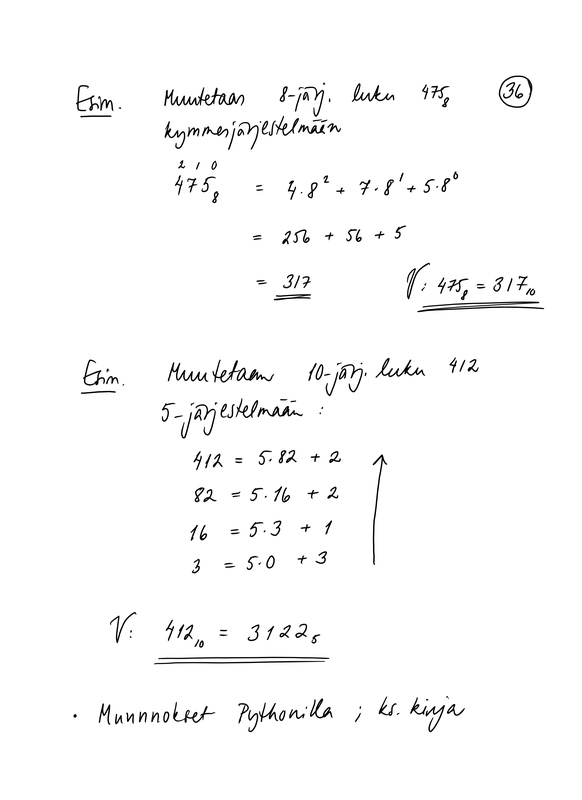 Esim. Muutetaan 8-järj. luku 475₈ 36
kymmenjärjestelmään
2 1 0
475₈ = 4·8² + 7·8¹ + 5·8⁰
= 256 + 56 + 5
= 317 V: 475₈ = 317₁₀
Esim. Muutetaan 10-järj. luku 412
5-järjestelmään :
412 = 5·82 + 2
82 = 5·16 + 2
16 = 5·3 + 1
3 = 5·0 + 3
V: 412₁₀ = 3122₅
• Muunnnokset Pythonilla ; ks. kirja